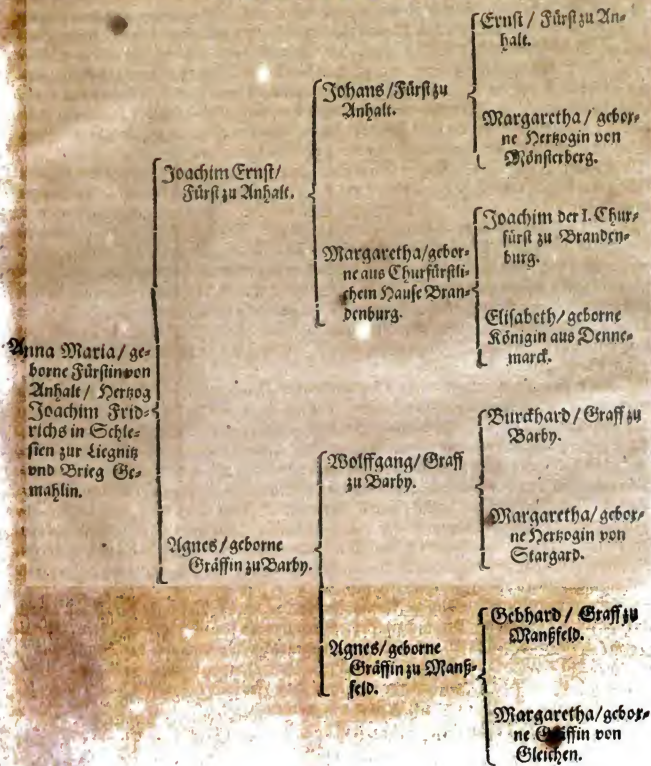 Anna Maria / ge-
borne Fürstin von
Anhalt / Hertzog
Joachim Frid-
richs in Schle-
sien zur Liegnitz
vnd Brieg Ge-
mahlin.
Joachim Ernst /
Fürst zu Anhalt.
Agnes / geborne
Gräffin zu Barby.
Johans / Fürst zu
Anhalt.
Margaretha / gebor-
ne aus Churfürstli-
chem Hause Bran-
denburg.
Wolffgang / Graff
zu Barby.
Agnes / geborne
Gräffin zu Manß-
feld.
Ernst / Fürst zu An-
halt.
Margaretha / gebor-
ne Hertzogin von
Mönsterberg.
Joachim der I. Chur-
fürst zu Branden-
burg.
Elisabeth / geborne
Königin aus Denne-
marck.
Burckhard / Graff zu
Barby.
Margaretha / gebor-
ne Hertzogin von
Stargard.
Gebhard / Graff zu
Manßfeld.
Margaretha / gebor-
ne Gräffin von
Gleichen.